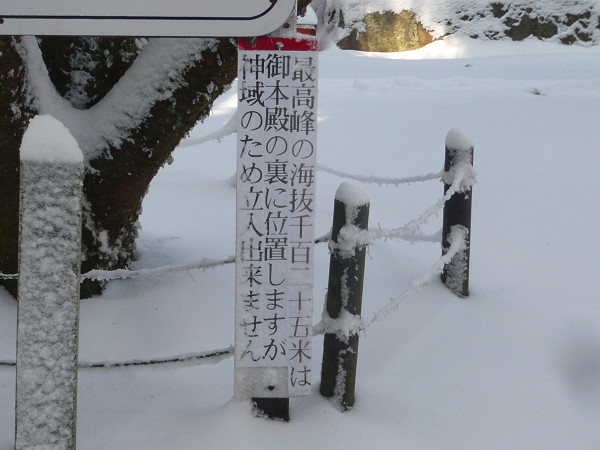 最高峰の海抜千百二十五米は
御本殿の裏に位置しますが
神域のため立入出来ません